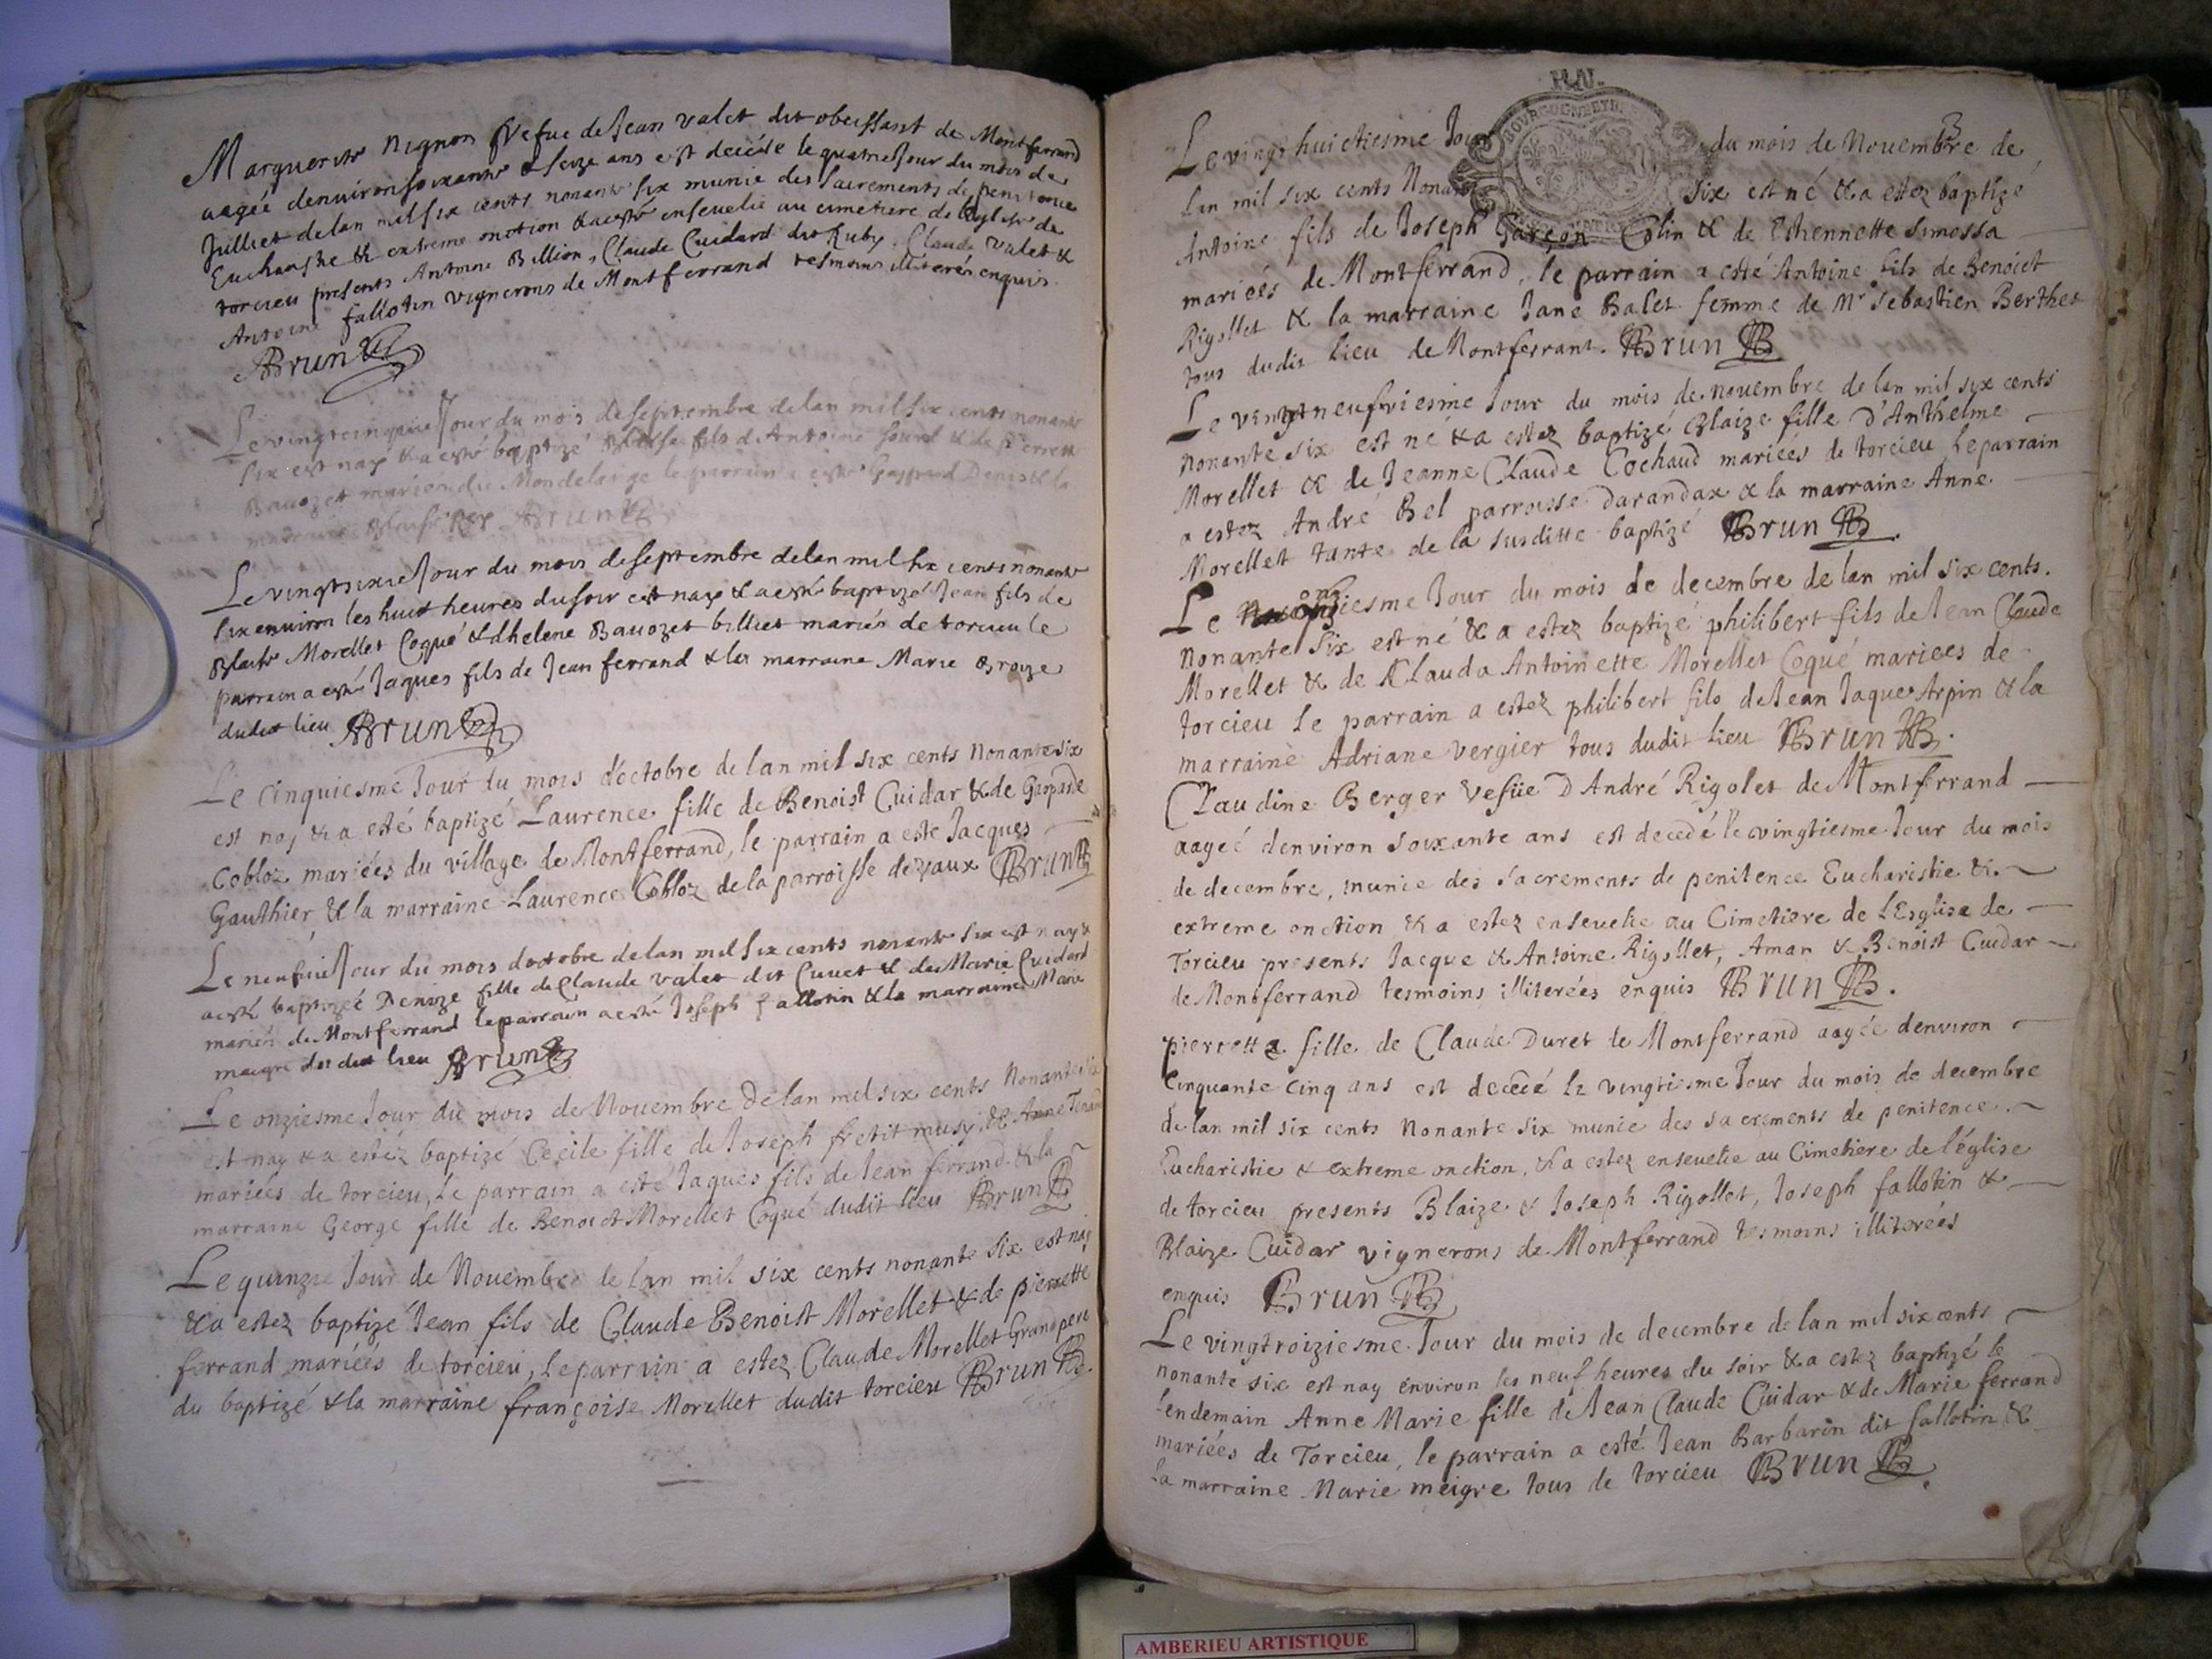 Marguerite Nignon vefue de Jean valet dit obeissant de Montferrand
aagée denviron soixante & seize ans est decedée le quatrie Jour du mois de
Juilliet de lan mil six cents nonante six munie des sacrements de penitence
Eucharistie & extreme onction & a esté enseuelie au cimetiere de leglise de
torcieu presents Antoine Billion, Claude Cuidard dit Ruby, Claude valet &
Antoine fallotin vignerons de Montferrand tesmoins illiterés enquis.
Brun
Le vingtcinquie Jour du mois de septembre de lan mil six cents nonante
six est nay & a esté baptizé Blaise fils d Antoine & de Pierrette
Bauozet mariés du Mondelange le parrain a esté Gaspard Denis & la
marraine Blaise Rey Brun
Le vingtsixie Jour du mois de septembre de lan mil six cents nonante
six enuiron les huit heures du soir est nay & a esté baptizé Jean fils de
Blaise Morellet Coqué & dhelene Bauozet billiet mariés de torcieu le
parrain a esté Jaques fils de Jean ferrand & la marraine Marie Broize
dudit lieu Brun
Le cinquiesme Jour du mois d'octobre de lan mil six cents Nonante six
est nay & a esté baptizé Laurence fille de Benoist Cuidar & de Gasparde
Cobloz mariées du village de Montferrand, le parrain a este Jacques
Gauthier & la marraine Laurence Cobloz de la parroisse de vaux Brun
Le neufuie Jour du mois doctobre de lan mil six cents nonante six est nay &
a esté baptizée Denize fille de Claude valet dit Cuuet & de Marie Cuidard
mariés de Montferrand le parrain a esté Joseph fallotin & la marraine Marie
meigre du dit lieu Brun
Le onziesme Jour du mois de Nouembre de lan mil six cents Nonante six
est nay & a estéz baptizé Cecile fille de Joseph fretit musy, & Anne
mariées de torcieu, le parrain a esté Jaques fils de Jean ferrand & la
marraine George fille de Benoict Morellet Coqué dudit lieu Brun
Le quinzie Jour de Nouembre de lan mil six cents nonante six est nay
& a estez baptizé Jean fils de Claude Benoist Morellet & de pierrette
ferrand mariéés de torcieu, le parrain a estez Claude Morellet Grand pere
du baptizé & la marraine françoise Morellet dudit torcieu Brun
Le vingt huictiesme Jour du mois de Nouembre de
lan mil six cents Nonante six est né & a estez baptizé
Antoine fils de Joseph Garçon Colin & de Ethennette Simossa
mariéés de Montferrand, le parrain a esté Antoine fils de Benoict
Rigollet & la marraine Jane Balet femme de Mr Sebastien Berthet
tous dudit lieu de Montferrant. Brun
Le vingtneufviesme Jour du mois de nouembre de lan mil syx cents
nonante six est né & a estez baptizé Blaize fille d'Anthelme
Morellet & de Jeanne Claude Cochaud mariées de torcieu le parrain
a estez André Bel parroisse darandax & la marraine Anne
Morellet tante de la susditte baptizé Brun
Le onziesme Jour du mois de decembre de lan mil six cents.
Nonante six est né & a estez baptizé philibert fils de Jean Claude
Morellet & de Clauda Antoinette Morellet Coqué mariees de
torcieu le parrain a estez philibert fils de Jean Jaques Arpin & la
marraine Adriane vergier tous dudit lieu Brun
Claudine Berger vefüe D André Rigolet de Montferrand
aageé denviron soixante ans est decedé le vingtiesme Jour du mois
de decembre, munie des sacrements de penitence Eucharistie &
extreme onction & a estez enseuelie au Cimetiere de lEsglise de
Torcieu presents Jacque & Antoine Rigollet, Aman & Benoist Cuidar
de Montferrand tesmoins illiterées enquis Brun
pierrette fille de Claude Duret de Montferrand aagée denviron
Cinquante cinq ans est decedé le vingtiesme Jour du mois de decembre
de lan mil six cents Nonante six munie des sacrements de penitence
Eucharistie & extreme onction, & a estez enseuelie au Cimetiere de l'église
de torcieu presents Blaize & Joseph Rigollet, Joseph fallotin &
Blaize Cuidar vignerons de Montferrand tesmoins illiterées
enquis Brun
Le vingtroiziesme Jour du mois de decembre de lan mil six cents
nonante six est nay environ les neuf heures du soir & a estez baptizé le
lendemain Anne Marie fille de Jean Claude Cuidar & de Marie ferrand
mariées de Torcieu, le parrain a esté Jean Barbarin dit fallotin &
la marraine Marie meigre tous de torcieu Brun
AMBERIEU ARTISTIQUE